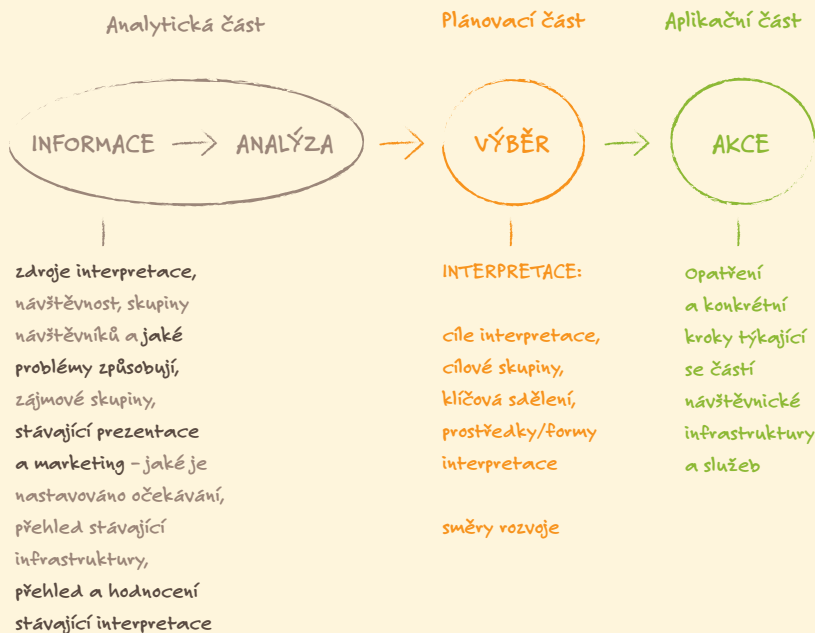 Analytická část
Plánovací část
Aplikační část
INFORMACE
ANALÝZA
VÝBĚR
AKCE
zdroje interpretace,
návštěvnost, skupiny
návštěvníků a jaké
problémy způsobují,
zájmové skupiny,
stávající prezentace
a marketing – jaké je
nastavováno očekávání,
přehled stávající
infrastruktury,
přehled a hodnocení
stávající interpretace
INTERPRETACE:
cíle interpretace,
cílové skupiny,
klíčová sdělení,
prostředky/formy
interpretace
směry rozvoje
Opatření
a konkrétní
kroky týkající
se částí
návštěvnické
infrastruktury
a služeb